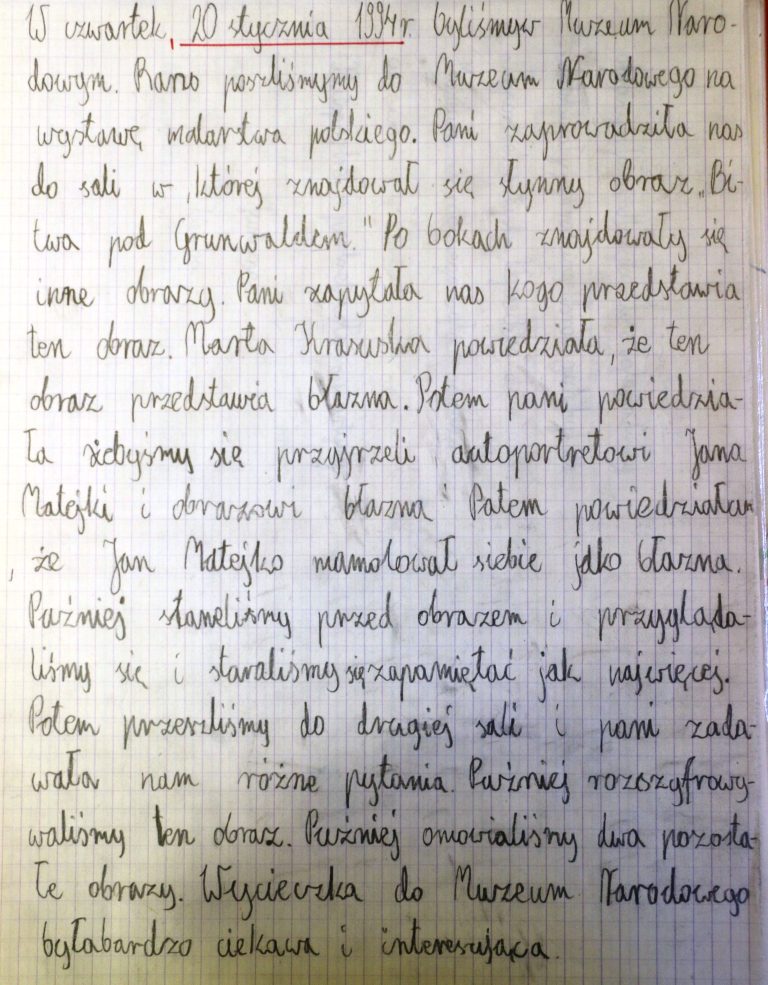 W czwartek, 20 stycznia 1994r. byliśmyw Muzeum Naro-
dowym. Rano poszliśmymy do Muzeum Narodowego na
wystawę malarstwa polskiego. Pani zaprowadziła nas
do sali w ,której znajdował się słynny obraz „Bi-
twa pod Grunwaldem." Po bokach znajdowały się
inne obrazy. Pani zapytała nas kogo przedstawia
ten obraz. Marta Krasuska powiedziała, że ten
obraz przedstawia błazna. Potem pani powiedzia-
ła żebyśmy się przyjrzeli autoportretowi Jana
Matejki i obrazowi błazna. Patem powiedziała
, że Jan Matejko mamolował siebie jako błazna.
Puźniej staneliśmy przed obrazem i przygląda-
liśmy się i staraliśmy sięzapamiętać jak najwięcej.
Potem przeszliśmy do drugiej sali i pani zada-
wała nam różne pytania. Puźniej rozszyfrowy-
waliśmy ten obraz. Puźniej omowialiśmy dwa pozosta-
łe obrazy. Wycieczka do Muzeum Narodowego
byłabardzo ciekawa i interesująca.